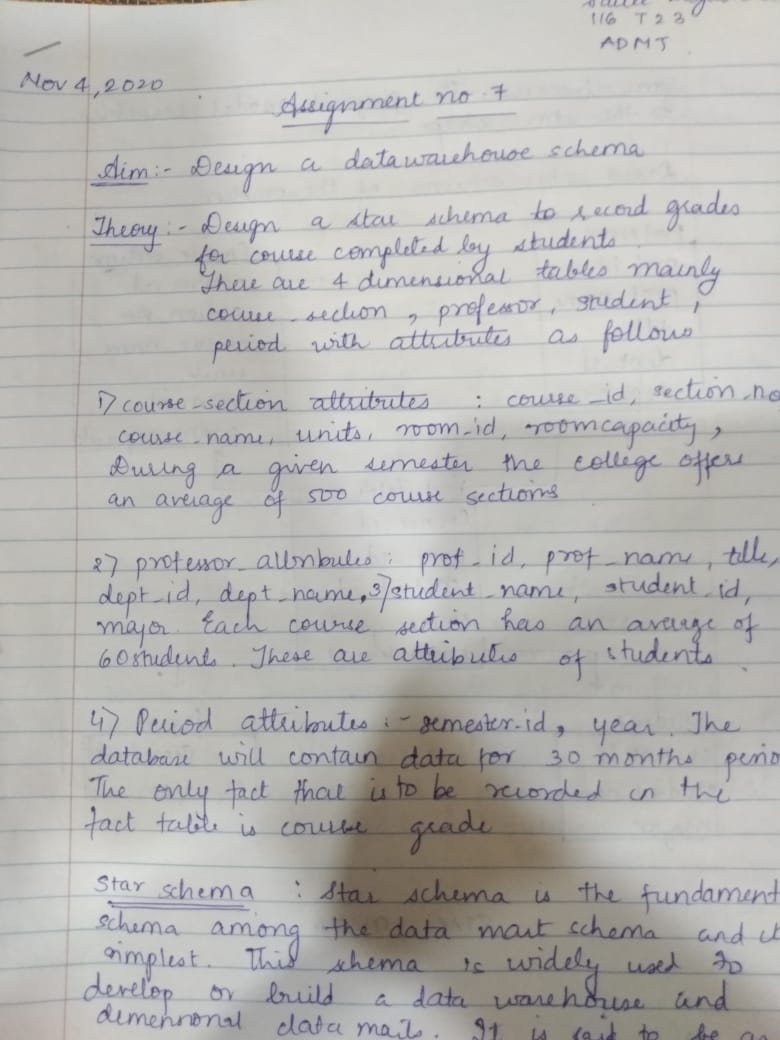 116 T23
ADMT
Nov 4, 2020
Assignment no. 7
Aim:- Design a datawarehouse schema
Theory:- Design a star schema to record grades
for course completed by students.
There are 4 dimensional tables mainly
course_section, professor, student,
period with attributes as follows
1) course-section attributes : course_id, section_no
course_name, units, room_id, roomcapacity,
During a given semester the college offers
an average of 500 course sections
2) professor_attributes : prof_id, prof_name, title,
dept_id, dept_name, 3) student_name, student_id,
major. Each course section has an average of
60 students. These are attributes of students.
4) Period attributes :- semester-id, year. The
database will contain data for 30 months perio
The only fact that is to be recorded in the
fact table is course grade
Star schema : Star schema is the fundament
schema among the data mart schema and it
simplest. This schema is widely used to
develop or build a data warehouse and
dimensional data marts. It is said to be